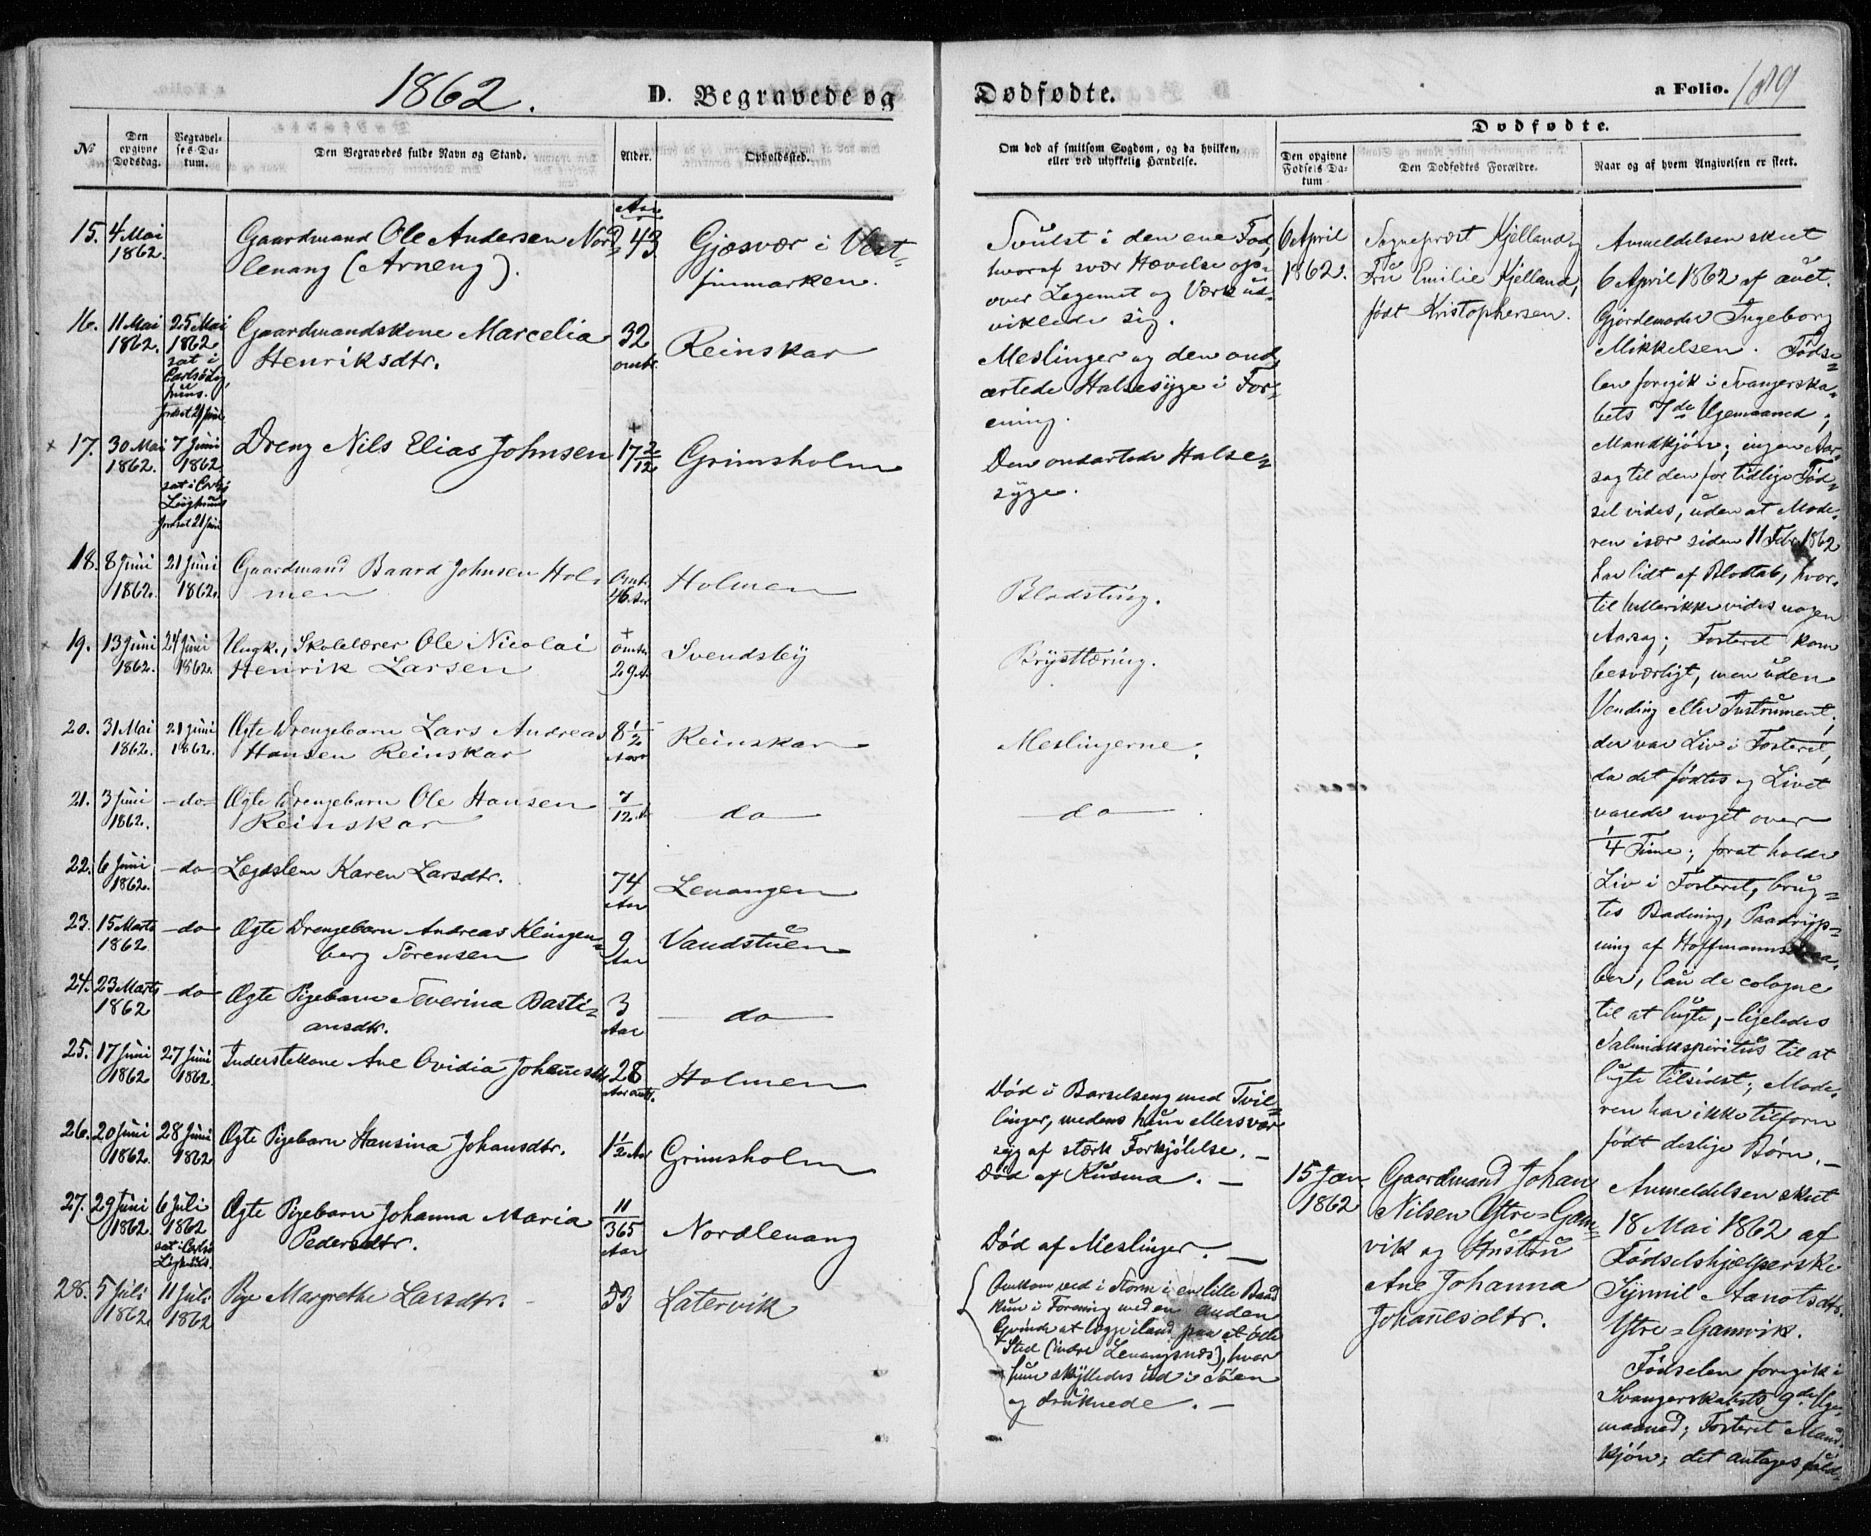 1862.
D. Begravede og
Dødfødte.
a Folio. 189
№
Den opgivne Dødsdag.
Begravelses Datum.
Den Begravedes fulde Navn og Stand.
Alder.
Opholdssted.
Om død af smitsom Sygdom, og da hvilken,
eller ved ulykkelig Hændelse.
Dødfødte.
Den opgivne Fødsels Datum
Den Dødfødtes Forældre.
Naar og af hvem Angivelsen er skeet.
15. 4 Mai 1862.
Gaardmand Ole Andersen Nord-
lenang (Arneng).
Aar
43
Gjæsvær i Vest-
finmarken.
Svulst i den ene Fod,
hvoraf svær Hævelse op-
over Legemet og Værk ud-
viklede sig.
16. 11 Mai 1862.
25 Mai
1862
sat i
Carlsø Lig-
huus.
jordsat 21 Juni
Gaardmandskone Marcelia
Henriksdtr.
32
omtr.
Reinskar
Meslinger og den ond-
artede Halsesyge i For-
ening.
17. 30 Mai 1862.
7 Juni
1862
sat i Carlsø
Liighuus
jordsat 21 Juni
Dreng Nils Elias Johnsen
17 2/12
Grimsholm
Den ondartede Halse-
syge.
18. 8 Juni 1862.
21 Juni 1862.
Gaardmand Baard Johnsen Hol-
men
Omtr.
46 Aar
Holmen
Blodsting.
19. 13 Juni 1862.
24 Juni 1862.
Ungk., Skolelærer Ole Nicolai
Henrik Larsen
omtr.
29 A.
Svendsby
Brysttæring.
20. 31 Mai 1862.
21 Juni 1862.
Ægte Drengebarn Lars Andreas
Hansen Reinskar
8 1/2
Aar
Reinskar
Meslingerne.
21. 3 Juni 1862.
- do -
Ægte Drengebarn Ole Hansen
Reinskar
7/12 A.
do
do
22. 6 Juni 1862.
- do -
Lægdslem Karen Larsdtr.
74
Aar
Lenangen
23. 15 Marts 1862
- do -
Ægte Drengebarn Andreas Klingen-
berg Sørensen
9
Aar
Vandstuen
24. 23 Marts 1862
- do -
Ægte Pigebarn Severina Basti-
ansdtr.
3
Aar
do
25. 17 Juni 1862
27 Juni 1862.
Inderstekone Ane Ovidia Johansdtr
28
Aar omtr.
Holmen
Død i Barselseng med Tvil-
linger, medens hun ellers var
syg af stærk Forkjølelse. -
26. 20 Juni 1862.
28 Juni 1862
Ægte Pigebarn Hansina Johansdtr.
1 1/2 Aar
Grimsholm
Død af Kusma. -
27. 29 Juni 1862.
6 Juli
1862
sat i Carlsø
Lighuus.
Ægte Pigebarn Johanna Maria
Pedersdtr.
11/365
Aar
Nordlenang
Død af Meslinger. -
28. 5 Juli 1862.
11 Juli 1862
Pige Margrethe Larsdtr. -
53
Latervik
Omkom ved i Storm i en lille Baad
hun i Forening med en anden
Qvinde at lægge iland paa et øde
Sted (indre Lenangsnæs), hvor
hun skylledes ud i Søen
og druknede. -
6 April
1862.
Sogneprest Kjelland og
Fru Emilie Kjelland,
født Kristophersen.
Anmeldelsen skeet
6 April 1862 af auct.
Gjordemoder Ingeborg
Mikkelsen. Fødse-
len foregik i Svangerska-
bets 7de Ugemaaned;
Mandkjøn; ingen Aar-
sag til den for tidlige Fød-
sel vides, uden at Mode-
ren især siden 11 Feb. 1862
har lidt af Blodtab, hvor-
til heller ikke vides nogen
Aarsag; Fosteret kom
besværligt, men uden
Vending eller Instrument;
der var Liv i Fosteret,
da det fødtes og Livet
varede noget over
1/4 Time; forat holde
Liv i Fosteret, brug-
tes Badning, Paadryp-
ning af Hoffmannsdraa-
ber, Eau de cologne
til at lugte, - ligeledes
Salmiakspiritus til at
lugte tilsidst; Mode-
ren har ikke tilforn
født deslige Børn. -
15 Jan
1862
Gaardmand Johan
Nilsen Ytre-Gam-
vik og Hustru
Ane Johanna
Johannesdtr.
Anmeldelsen skeet
18 Mai 1862 af
Fødselshjælperske
Synnil Arnotsdtr.
Ytre-Gamvik.
Fødselen foregik i
Svangerskabets 9de Uge-
maaned; Fosteret Mand-
kjøn; det antages fuld-